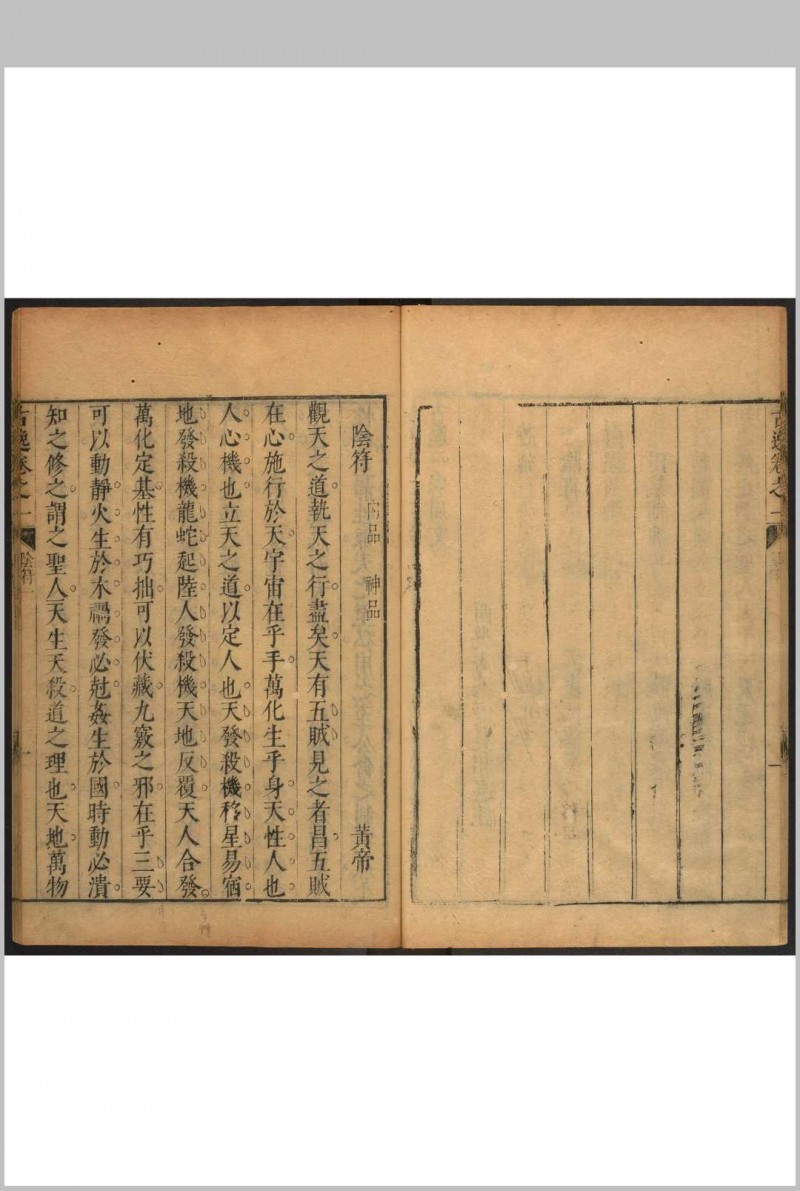 古逸卷之一
陰符 品 神品 黃帝
觀天之道執天之行盡矣天有五賊見之者昌五賊
在心施行於天宇宙在乎手萬化生乎身天性人也
人心機也立天之道以定人也天發殺機移星易宿
地發殺機龍蛇起陸人發殺機天地反覆天人合發
萬化定基性有巧拙可以伏藏九竅之邪在乎三要
可以動靜火生於木禍發必尅姦生於國時動必潰
知之修之謂之聖人天生天殺道之理也天地萬物
古逸卷之一 陰符 一